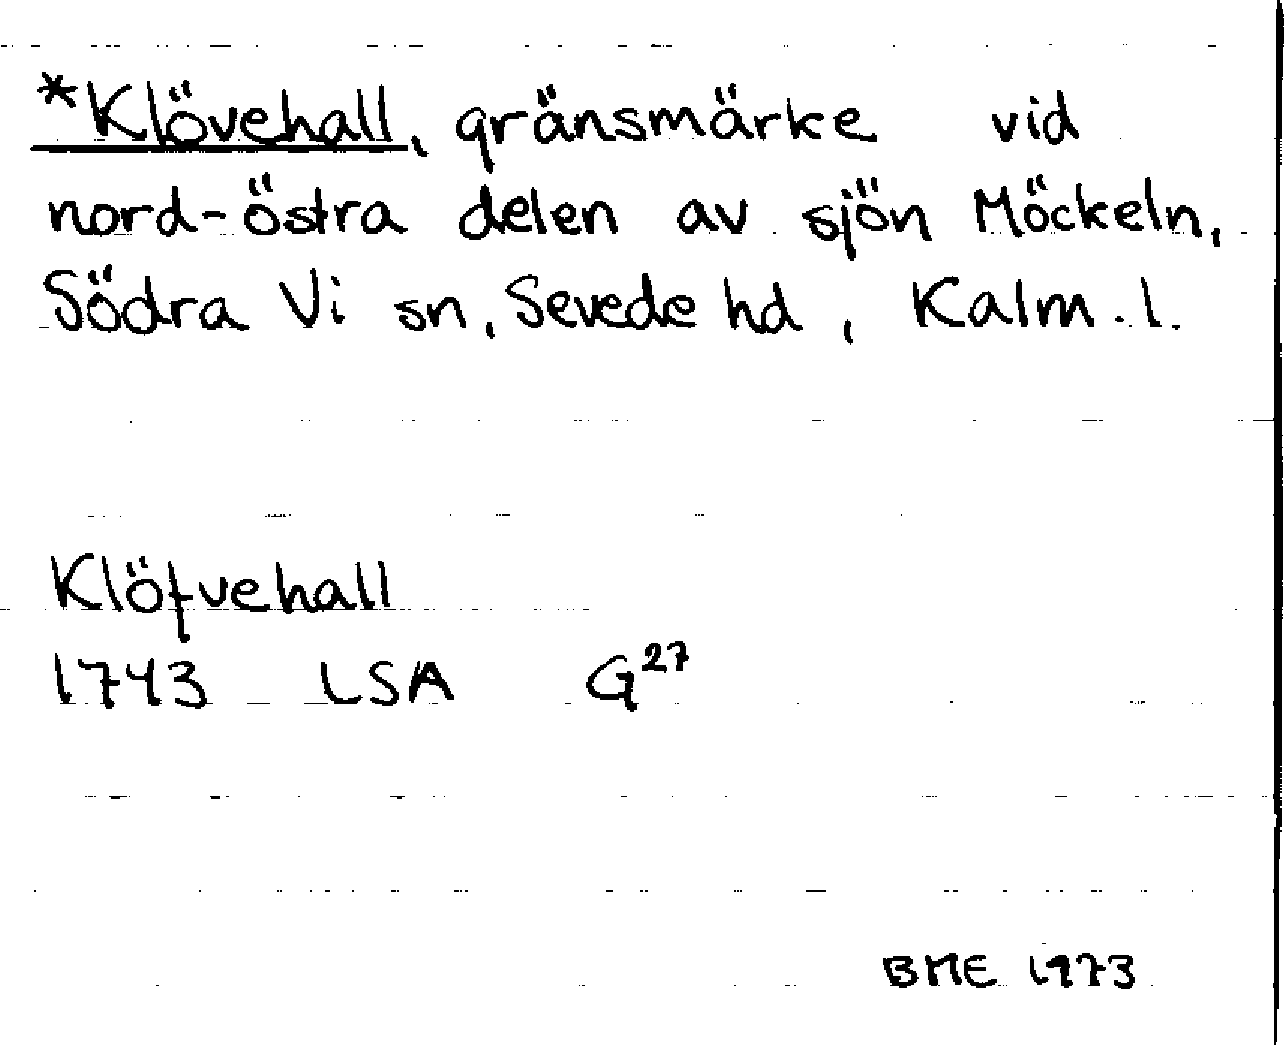 *Klövehall, gränsmärke vid
nord-östra delen av sjön Möckeln,
Södra Vi sn, Sevede hd, Kalm. l.
Klöfvehall
1743 LSA G²⁷
BME 1973